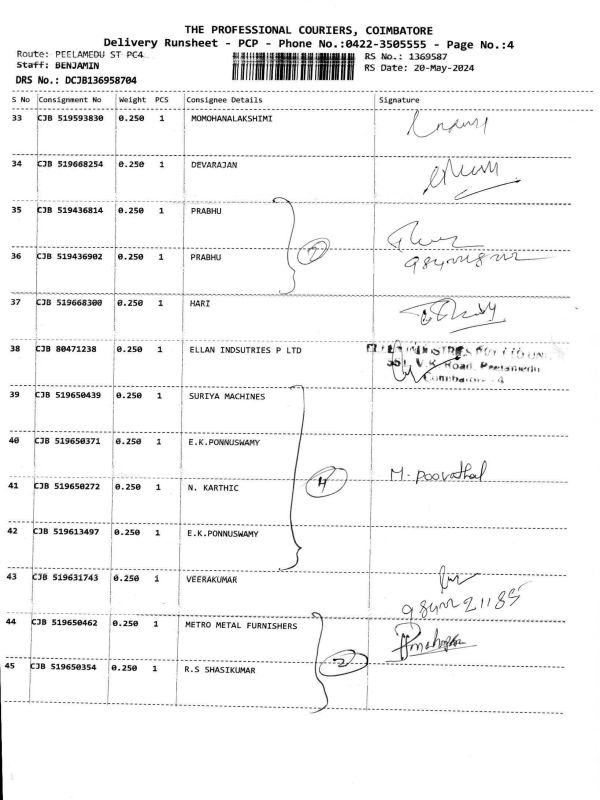 THE PROFESSIONAL COURIERS, COIMBATORE
Delivery Runsheet - PCP - Phone No.:0422-3505555 - Page No.:4
Route: PEELAMEDU ST PC4
Staff: BENJAMIN
DRS No.: DCJB136958704
RS No.: 1369587
RS Date: 20-May-2024
S No Consignment No Weight PCS Consignee Details Signature
33 CJB 519593830 0.250 1 MOMOHANALAKSHIMI
34 CJB 519668254 0.250 1 DEVARAJAN
35 CJB 519436814 0.250 1 PRABHU
36 CJB 519436902 0.250 1 PRABHU
37 CJB 519668300 0.250 1 HARI
38 CJB 80471238 0.250 1 ELLAN INDSUTRIES P LTD
V.K. Road, Peelamedu
Coimbatore - 4
39 CJB 519650439 0.250 1 SURIYA MACHINES
40 CJB 519650371 0.250 1 E.K.PONNUSWAMY M. Poovathal
41 CJB 519650272 0.250 1 N. KARTHIC 4
42 CJB 519613497 0.250 1 E.K.PONNUSWAMY
43 CJB 519631743 0.250 1 VEERAKUMAR
44 CJB 519650462 0.250 1 METRO METAL FURNISHERS
2
45 CJB 519650354 0.250 1 R.S SHASIKUMAR